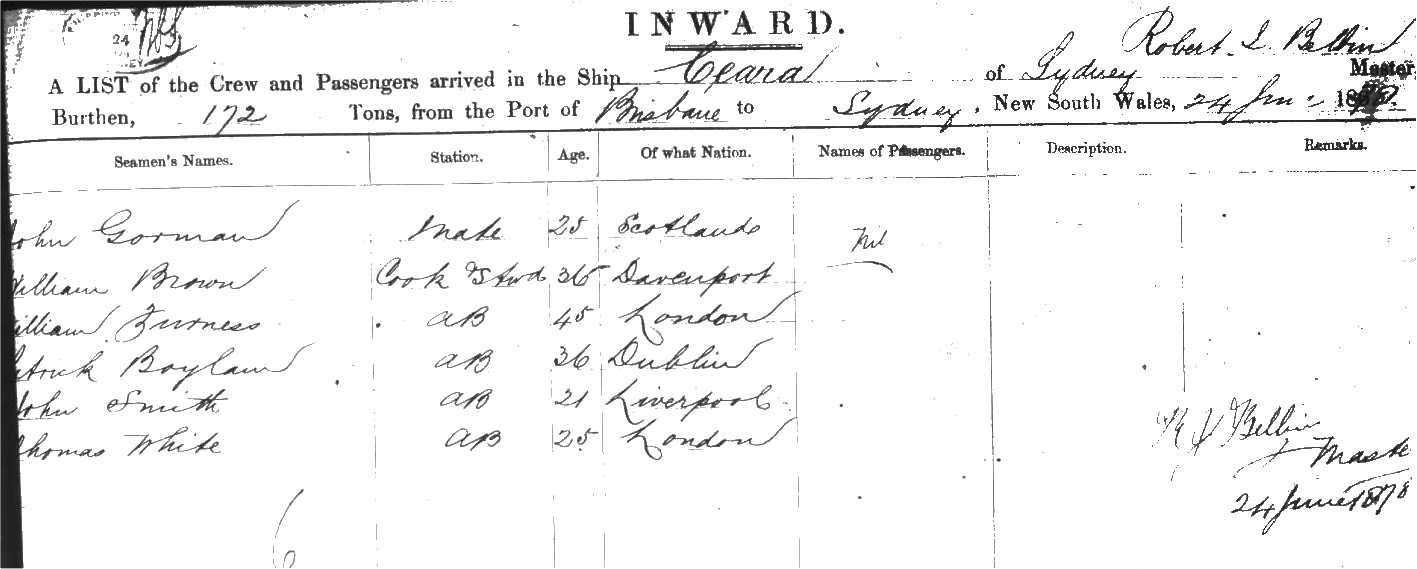 24
INWARD.
Robert J. Bellin
A LIST of the Crew and Passengers arrived in the Ship Ceara of Sydney Master,
Burthen, 172 Tons, from the Port of Brisbane to Sydney, New South Wales, 24 June 1878.
Seamen's Names. Station. Age. Of what Nation. Names of Passengers. Description. Remarks.
John Gorman Mate 25 Scotland Nil
William Brown Cook & Stwd 36 Davenport
William Furness AB 45 London
Patrick Boylan AB 36 Dublin
John Smith AB 21 Liverpool
Thomas White AB 25 London
R J Bellin
Master
24 June 1878
6